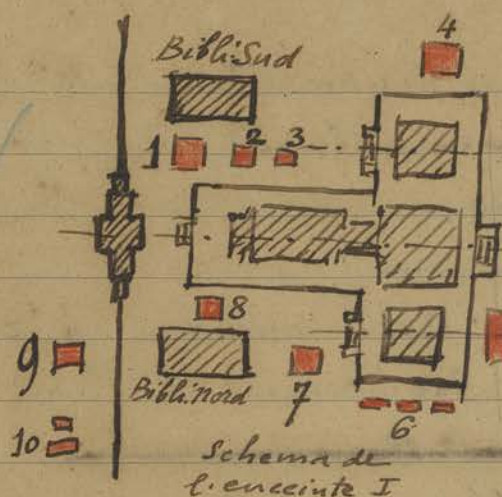 4
Bibli.Sud
1 2 3
8
9
Bibli.Nord
7
6
10
Schema de
l'enceinte I